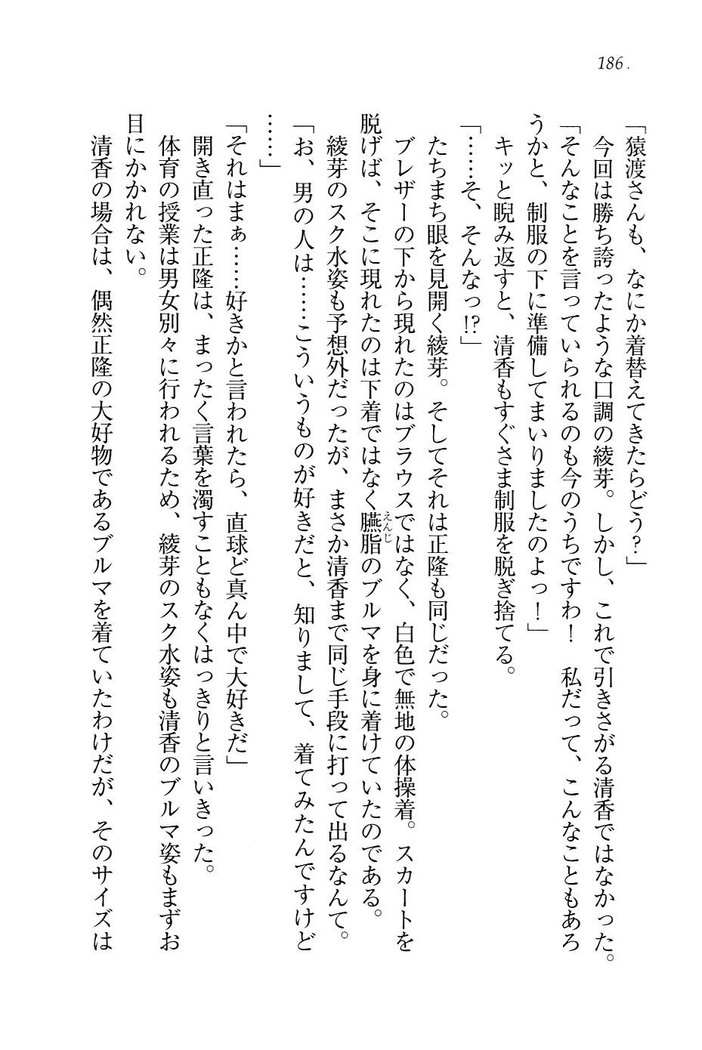 186.
「猿渡さんも、なにか着替えてきたらどう？」
今回は勝ち誇ったような口調の綾芽。しかし、これで引きさがる清香ではなかった。
「そんなことを言っていられるのも今のうちですわ！　私だって、こんなこともあろ
うかと、制服の下に準備してまいりましたのよっ！」
キッと睨み返すと、清香もすぐさま制服を脱ぎ捨てる。
「……そ、そんなっ!?」
たちまち眼を見開く綾芽。そしてそれは正隆も同じだった。
ブレザーの下から現れたのはブラウスではなく、白色で無地の体操着。スカートを
脱げば、そこに現れたのは下着ではなく臙脂えんじのブルマを身に着けていたのである。
綾芽のスク水姿も予想外だったが、まさか清香まで同じ手段に打って出るなんて。
「お、男の人は……こういうものが好きだと、知りまして、着てみたんですけど
……」
「それはまぁ……好きかと言われたら、直球ど真ん中で大好きだ」
開き直った正隆は、まったく言葉を濁すこともなくはっきりと言いきった。
体育の授業は男女別々に行われるため、綾芽のスク水姿も清香のブルマ姿もまずお
目にかかれない。
清香の場合は、偶然正隆の大好物であるブルマを着ていたわけだが、そのサイズは